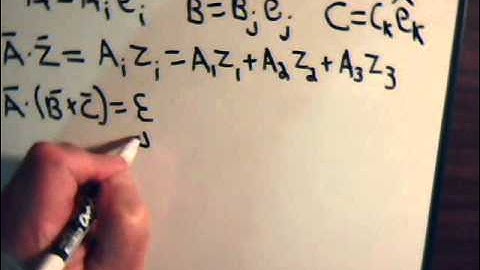 Ā = A_i ê_i B̄ = B_j ê_j C̄ = C_k ê_k
Ā · Z̄ = A_i Z_i = A_1 Z_1 + A_2 Z_2 + A_3 Z_3
Ā · (B̄ × C̄) = ε_j